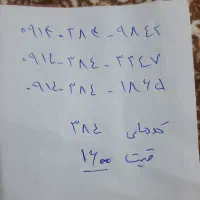 ۰۹۱۴-۳۸۴-۹۸۴۲
۰۹۱۴-۳۸۴-۲۲۴۷
۰۹۱۴-۳۸۴-۱۸۶۵
کدهای ۳۸۴
قیمت ۱۶۰۰